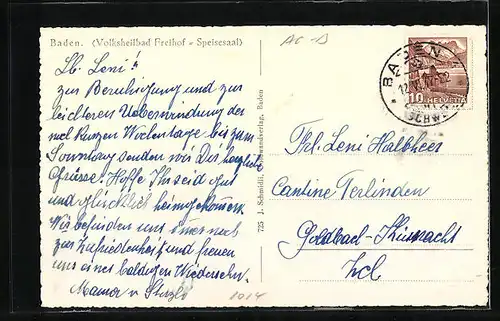 Baden. (Volksheilbad Freihof - Speisesaal)
Lb. Leni!
zur Beruhigung und zur
leichteren Ueberwindung der
noch kurzen Wochentage bis zum
Sonntag senden wir Dir herzliche
Grüsse. Hoffe Ihr seid gut
und glücklich heimgekommen.
Wir befinden uns immer noch
zur Zufriedenheit und freuen
uns eines baldigen Wiedersehn.
Mama
1014
725 J. Schmidli, Baden
BADEN
12.VI.
10 HELVETIA
Frl. Leni
Cantine Terlinden
Goldbach-Küsnacht
Zch